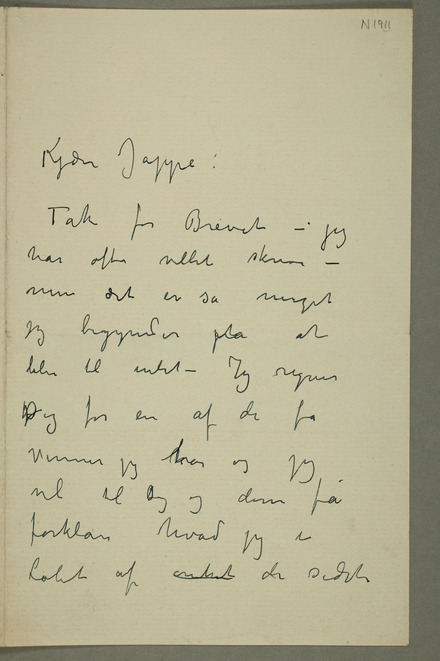 N 1911
Kjære Jappe:
Tak for Brevet – jeg
har ofte villet skrive –
men det er så meget
jeg begynder på at
blir til intet – Jeg regner
Dig for en af de få
Venner jeg har og jeg
vil til Dig og dem få
forklare hvad jeg i
Løbet af de sidste